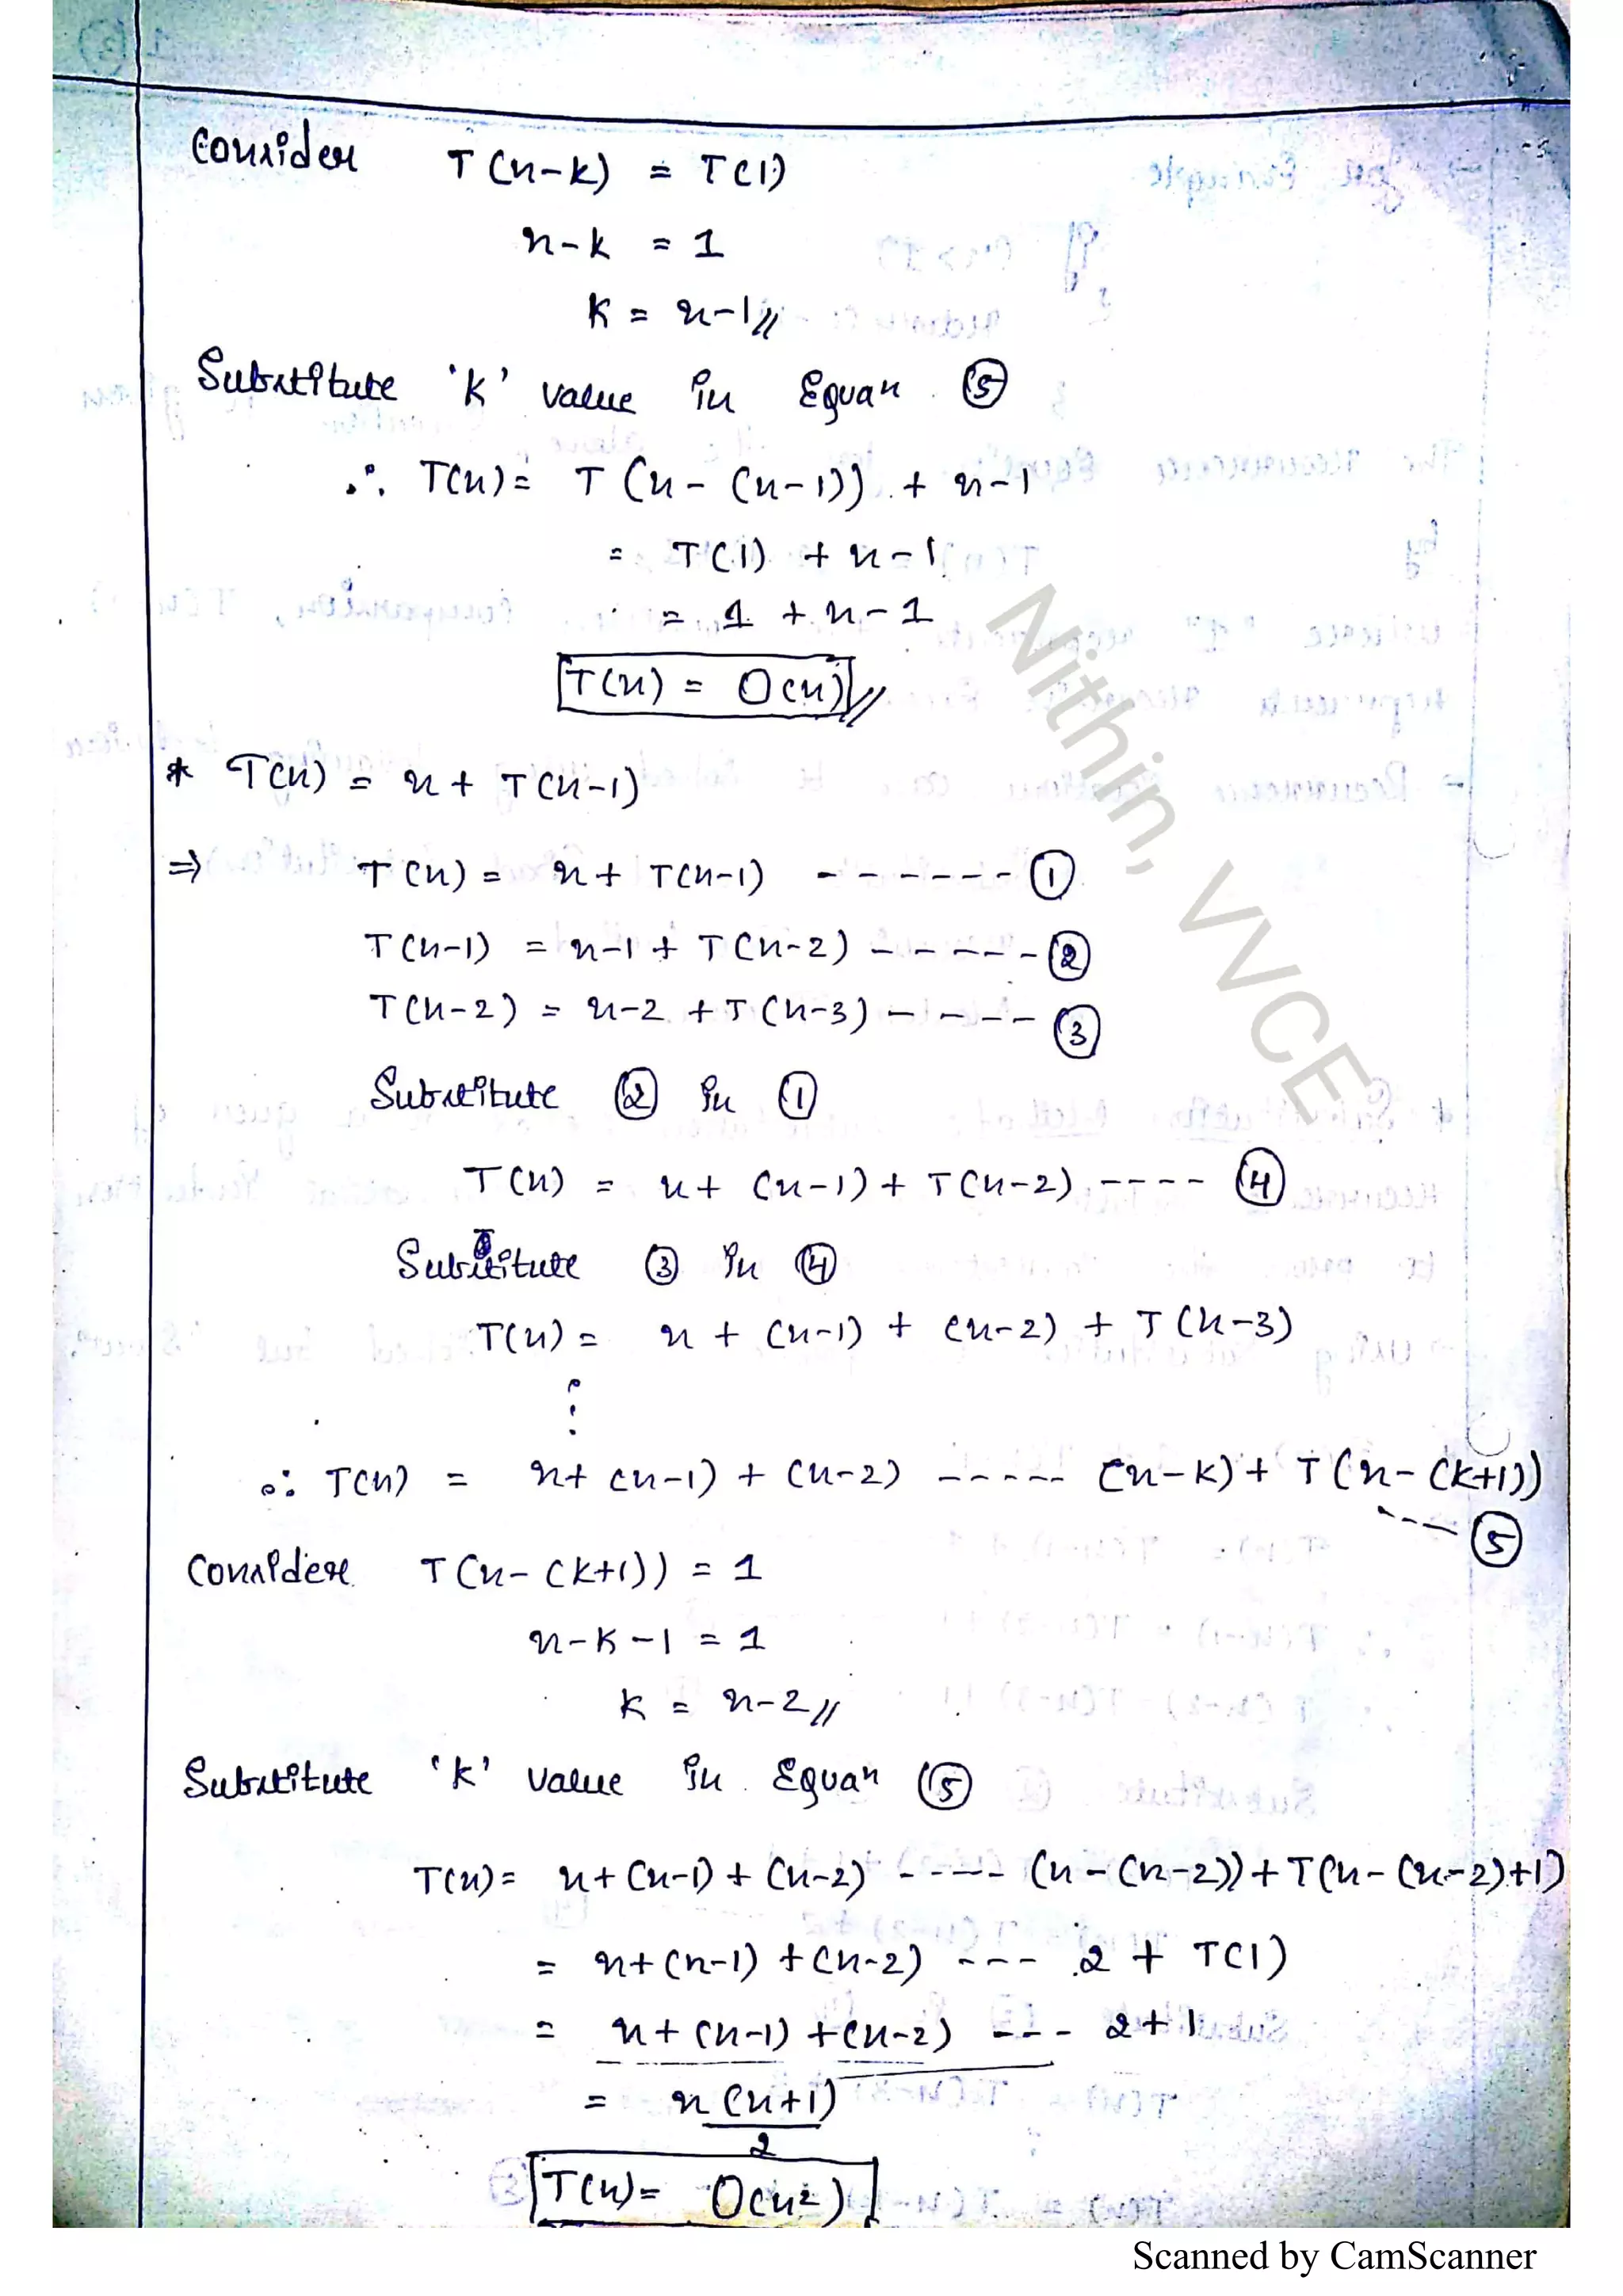 Consider T(n-k) = T(1)
n-k = 1
K = n-1//
Substitute 'K' value in Equan (5)
∴ T(n) = T(n-(n-1)) + n-1
= T(1) + n-1
= 1 + n-1
T(n) = O(n)//
* T(n) = n + T(n-1)
⇒ T(n) = n + T(n-1) ------ (1)
T(n-1) = n-1 + T(n-2) ----- (2)
T(n-2) = n-2 + T(n-3) ---- (3)
Substitute (2) in (1)
T(n) = n + (n-1) + T(n-2) ---- (4)
Substitute (3) in (4)
T(n) = n + (n-1) + (n-2) + T(n-3)
⋮
∴ T(n) = n + (n-1) + (n-2) ----- (n-k) + T(n-(k+1))
--- (5)
Consider T(n-(k+1)) = 1
n-k-1 = 1
k = n-2//
Substitute 'k' value in Equan (5)
T(n) = n + (n-1) + (n-2) ---- (n-(n-2)) + T(n-(n-2)+1)
= n + (n-1) + (n-2) --- 2 + T(1)
= n + (n-1) + (n-2) --- 2+1
= n(n+1)
2
T(n) = O(n²)
Nithin, VVCE
Scanned by CamScanner